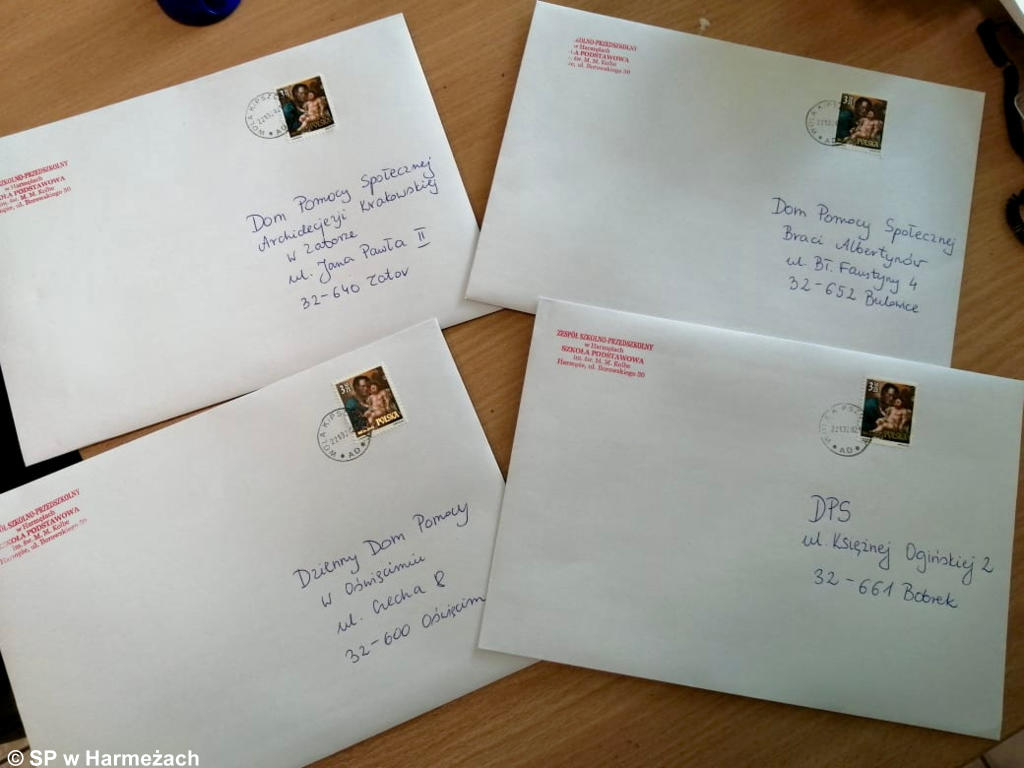 SZKOLNO-PRZEDSZKOLNY
w Harmężach
SZKOŁA PODSTAWOWA
im. św. M. M. Kolbe
ul. Borowskiego 30
POLSKA
Dom Pomocy Społecznej
Archidiecezji Krakowskiej
w Zatorze
ul. Jana Pawła II
32-640 Zator
SZKOLNO-PRZEDSZKOLNY
w Harmężach
PODSTAWOWA
św. M. M. Kolbe
ul. Borowskiego 30
POLSKA
Dom Pomocy Społecznej
Braci Albertynów
ul. Bł. Faustyny 4
32-652 Bulowice
SZKOLNO-PRZEDSZKOLNY
w Harmężach
SZKOŁA PODSTAWOWA
im. św. M. M. Kolbe
Harmęże, ul. Borowskiego 30
POLSKA
AD
Dzienny Dom Pomocy
w Oświęcimiu
ul.
32-600 Oświęcim
ZESPÓŁ SZKOLNO-PRZEDSZKOLNY
w Harmężach
SZKOŁA PODSTAWOWA
im. św. M. M. Kolbe
Harmęże, ul. Borowskiego 30
POLSKA
AD
DPS
ul. Księżnej Ogińskiej 2
32-661 Bobrek
© SP w Harmeżach